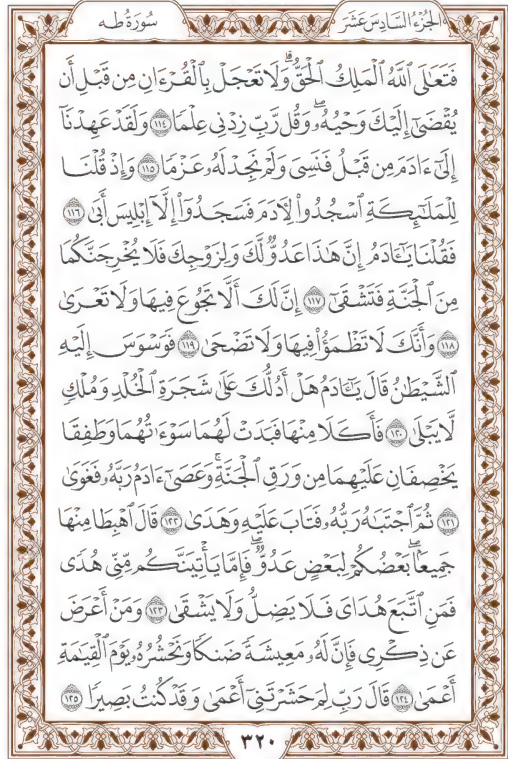 الجُزْءُ السَّادِسَ عَشَرَ سُورَةُ طه
فَتَعَٰلَى ٱللَّهُ ٱلۡمَلِكُ ٱلۡحَقُّۗ وَلَا تَعۡجَلۡ بِٱلۡقُرۡءَانِ مِن قَبۡلِ أَن
يُقۡضَىٰٓ إِلَيۡكَ وَحۡيُهُۥۖ وَقُل رَّبِّ زِدۡنِي عِلۡمٗا ١١٤ وَلَقَدۡ عَهِدۡنَآ
إِلَىٰٓ ءَادَمَ مِن قَبۡلُ فَنَسِيَ وَلَمۡ نَجِدۡ لَهُۥ عَزۡمٗا ١١٥ وَإِذۡ قُلۡنَا
لِلۡمَلَٰٓئِكَةِ ٱسۡجُدُواْ لِأٓدَمَ فَسَجَدُوٓاْ إِلَّآ إِبۡلِيسَ أَبَىٰ ١١٦
فَقُلۡنَا يَٰٓـَٔادَمُ إِنَّ هَٰذَا عَدُوّٞ لَّكَ وَلِزَوۡجِكَ فَلَا يُخۡرِجَنَّكُمَا
مِنَ ٱلۡجَنَّةِ فَتَشۡقَىٰٓ ١١٧ إِنَّ لَكَ أَلَّا تَجُوعَ فِيهَا وَلَا تَعۡرَىٰ
١١٨ وَأَنَّكَ لَا تَظۡمَؤُاْ فِيهَا وَلَا تَضۡحَىٰ ١١٩ فَوَسۡوَسَ إِلَيۡهِ
ٱلشَّيۡطَٰنُ قَالَ يَٰٓـَٔادَمُ هَلۡ أَدُلُّكَ عَلَىٰ شَجَرَةِ ٱلۡخُلۡدِ وَمُلۡكٖ
لَّا يَبۡلَىٰ ١٢٠ فَأَكَلَا مِنۡهَا فَبَدَتۡ لَهُمَا سَوۡءَٰتُهُمَا وَطَفِقَا
يَخۡصِفَانِ عَلَيۡهِمَا مِن وَرَقِ ٱلۡجَنَّةِۚ وَعَصَىٰٓ ءَادَمُ رَبَّهُۥ فَغَوَىٰ
١٢١ ثُمَّ ٱجۡتَبَٰهُ رَبُّهُۥ فَتَابَ عَلَيۡهِ وَهَدَىٰ ١٢٢ قَالَ ٱهۡبِطَا مِنۡهَا
جَمِيعَۢاۖ بَعۡضُكُمۡ لِبَعۡضٍ عَدُوّٞۖ فَإِمَّا يَأۡتِيَنَّكُم مِّنِّي هُدٗى
فَمَنِ ٱتَّبَعَ هُدَايَ فَلَا يَضِلُّ وَلَا يَشۡقَىٰ ١٢٣ وَمَنۡ أَعۡرَضَ
عَن ذِكۡرِي فَإِنَّ لَهُۥ مَعِيشَةٗ ضَنكٗا وَنَحۡشُرُهُۥ يَوۡمَ ٱلۡقِيَٰمَةِ
أَعۡمَىٰ ١٢٤ قَالَ رَبِّ لِمَ حَشَرۡتَنِيٓ أَعۡمَىٰ وَقَدۡ كُنتُ بَصِيرٗا ١٢٥
٣٢٠